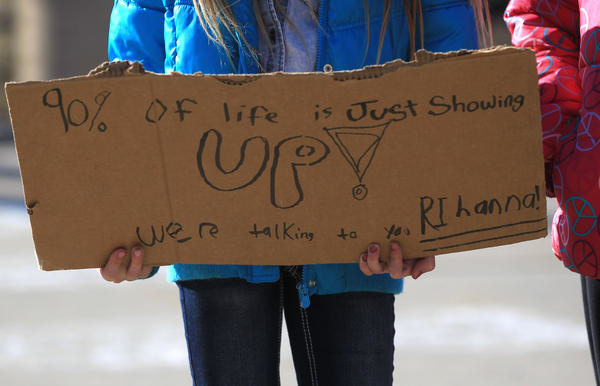 90% of life is Just Showing
UP!
we're talking to you RIhanna!